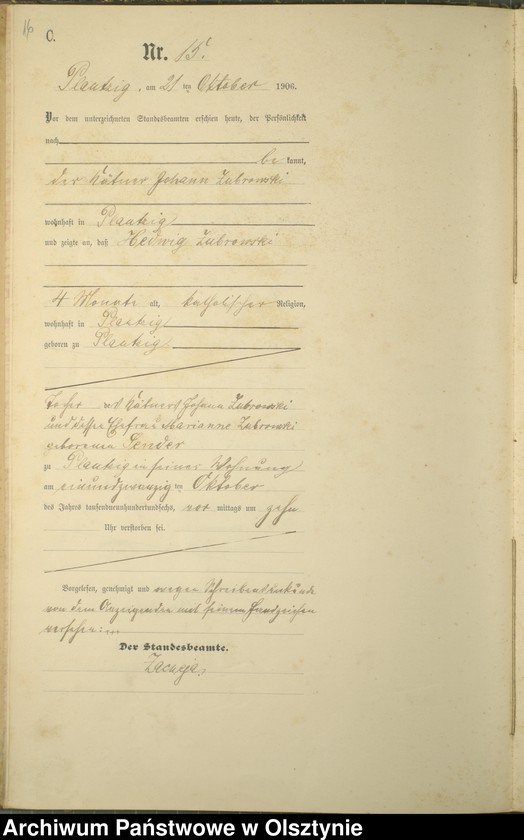 16
C.
Nr. 15.
Plautzig, am 21 ten Oktober 1906.
Vor dem unterzeichneten Standesbeamten erschien heute, der Persönlichkeit
nach
be kannt,
der Kätner Johann Zubrowski
wohnhaft in Plautzig
und zeigte an, daß Hedwig Zubrowski
4 Monate alt, katholischer Religion,
wohnhaft in Plautzig
geboren zu Plautzig
Tochter des Kätners Johann Zubrowski
und dessen Ehefrau Marianne Zubrowski
geborenen Sender
zu Plautzig in seiner Wohnung
am einundzwanzig ten Oktober
des Jahres tausendneunhundertundsechs, vor mittags um zehn
Uhr verstorben sei.
Vorgelesen, genehmigt und wegen Schreibensunkunde
von dem Anzeigenden mit seinem Handzeichen
versehen:
Der Standesbeamte.
Archiwum Państwowe w Olsztynie